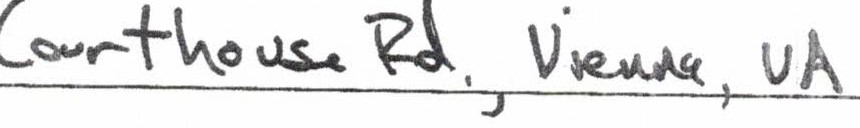 Courthouse Rd., Vienna, VA